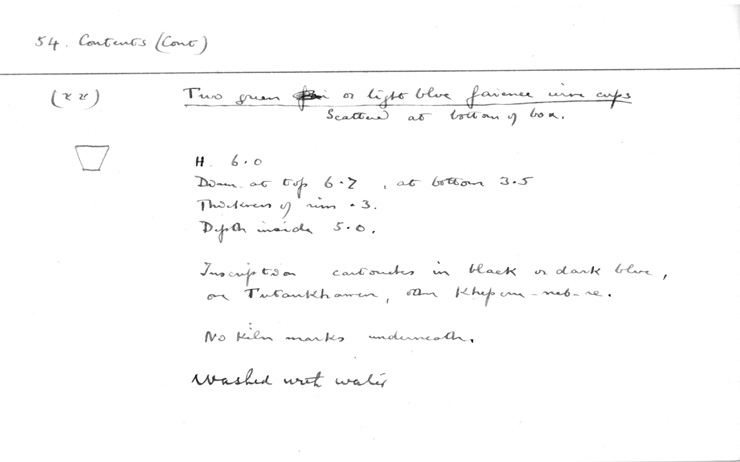 54. Contents (Cont)
(xx)
Two green or light blue faience wine cups
Scattered at bottom of box.
H. 6.0
Diam. at top 6.7, at bottom 3.5
Thickness of rim .3.
Depth inside 5.0.
Inscription cartouches in black or dark blue,
one Tutankhamen, other Kheperu-neb-re.
No kiln marks underneath.
Washed with water